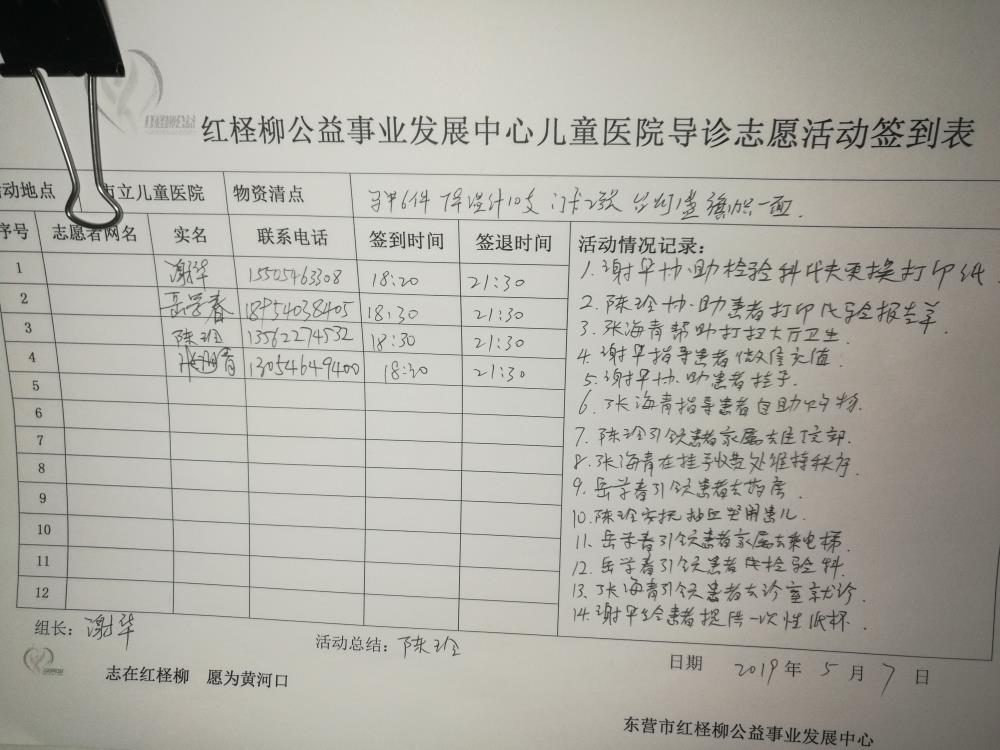 红柽柳公益
红柽柳公益事业发展中心儿童医院导诊志愿活动签到表
动地点 市立儿童医院 物资清点 马甲6件 体温计10支 门卡2张 台灯1盏 旗帜一面.
序号 志愿者网名 实名 联系电话 签到时间 签退时间 活动情况记录:
1 谢华 15505463308 18:20 21:30
2 岳学春 18954038405 18:30 21:30
3 陈玲 13562274532 18:30 21:30
4 张海青 13054649400 18:20 21:30
5
6
7
8
9
10
11
12
1.谢华协助检验科代夫更换打印纸.
2.陈玲协助患者打印化验报告单.
3.张海青帮助打扫大厅卫生.
4.谢华指导患者微信充值.
5.谢华协助患者挂号.
6.张海青指导患者自助购物.
7.陈玲引领患者家属去住院部.
8.张海青在挂号收费处维持秩序.
9.岳学春引领患者去药房.
10.陈玲安抚抽血哭闹患儿.
11.岳学春引领患者家属去乘电梯.
12.岳学春引领患者去检验科.
13.张海青引领患者去诊室就诊.
14.谢华给患者提供一次性纸杯.
组长: 谢华 活动总结: 陈玲
日期 2019年5月7日
志在红柽柳 愿为黄河口
东营市红柽柳公益事业发展中心